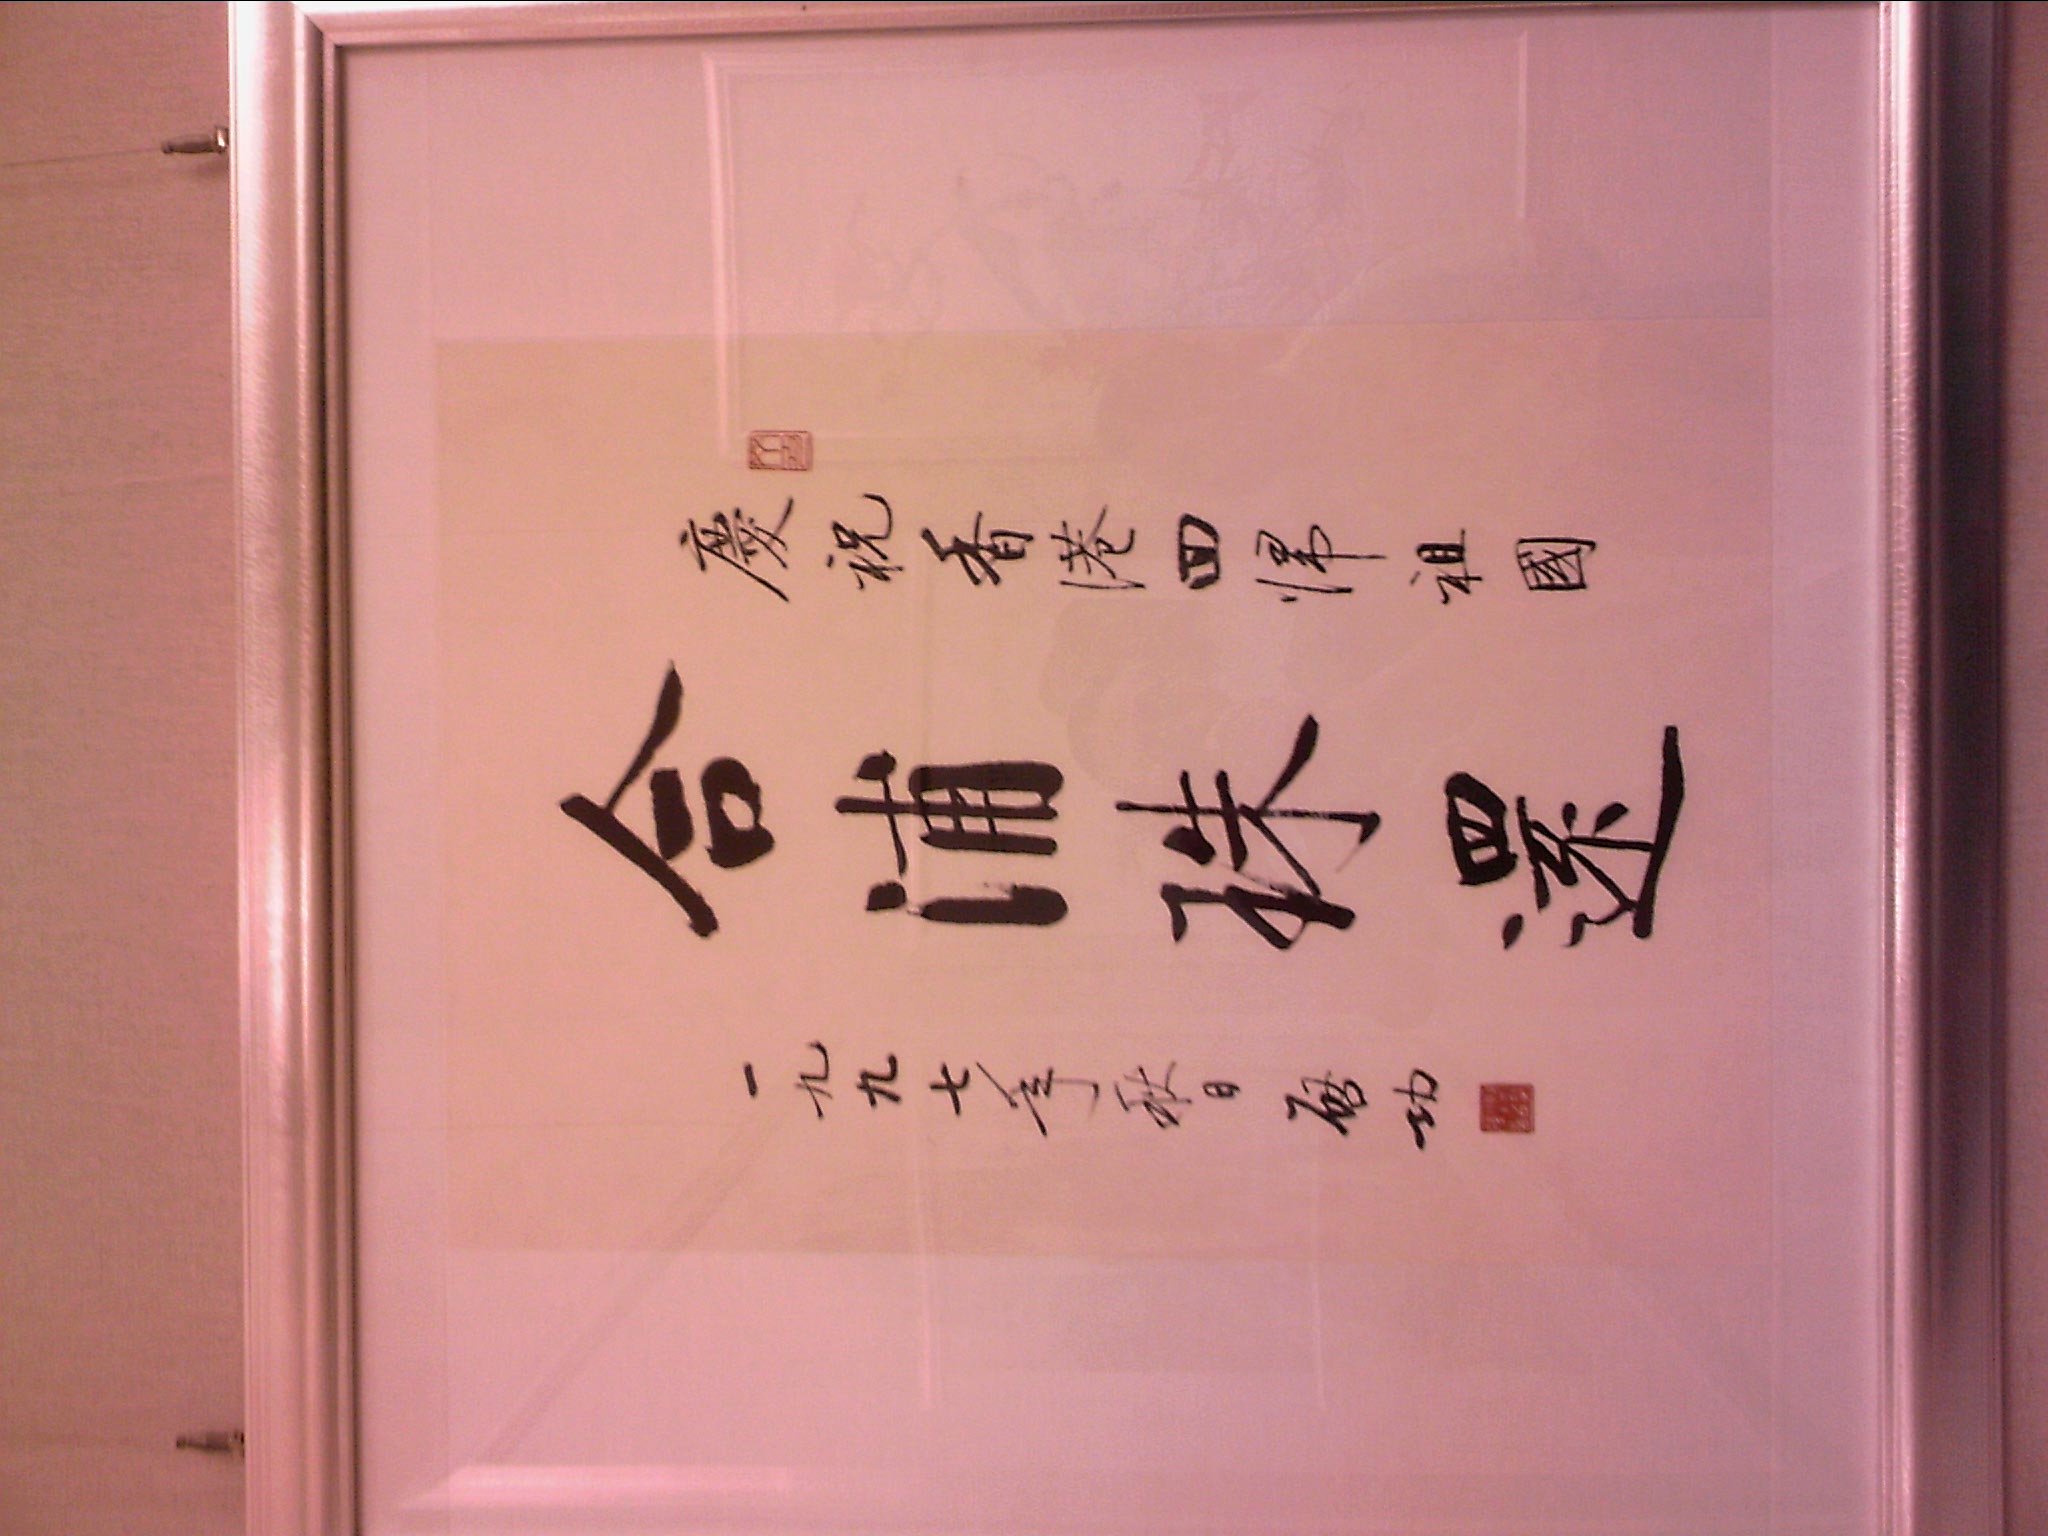 慶祝香港回歸祖國
合浦珠還
一九九七年秋日 啟功